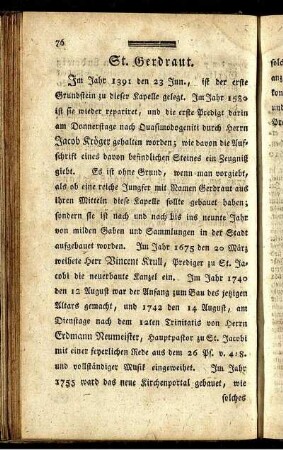 76
St. Gerdraut.
Im Jahr 1391 den 23 Jun., ist der erste
Grundstein zu dieser Kapelle gelegt. Im Jahr 1580
ist sie wieder repariret, und die erste Predigt darin
am Donnerstage nach Quasimodogeniti durch Herrn
Jacob Kröger gehalten worden; wie davon die Auf-
schrift eines davon befindlichen Steines ein Zeugniß
giebt. Es ist ohne Grund, wenn man vorgiebt,
als ob eine reiche Jungfer mit Namen Gerdraut aus
ihren Mitteln diese Kapelle sollte gebauet haben;
sondern sie ist nach und nach bis ins neunte Jahr
von milden Gaben und Sammlungen in der Stadt
aufgebauet worden. Im Jahr 1675 den 20 März
weihete Herr Vincent Krull, Prediger zu St. Ja-
cobi die neuerbaute Kanzel ein. Im Jahr 1740
den 12 August war der Anfang zum Bau des jezigen
Altars gemacht, und 1742 den 14 August, am
Dienstage nach dem 12ten Trinitatis von Herrn
Erdmann Neumeister, Hauptpastor zu St. Jacobi
mit einer feyerlichen Rede aus dem 26 Ps. v. 4:8.
und vollständiger Musik eingeweihet. Im Jahr
1755 ward das neue Kirchenportal gebauet, wie
solches